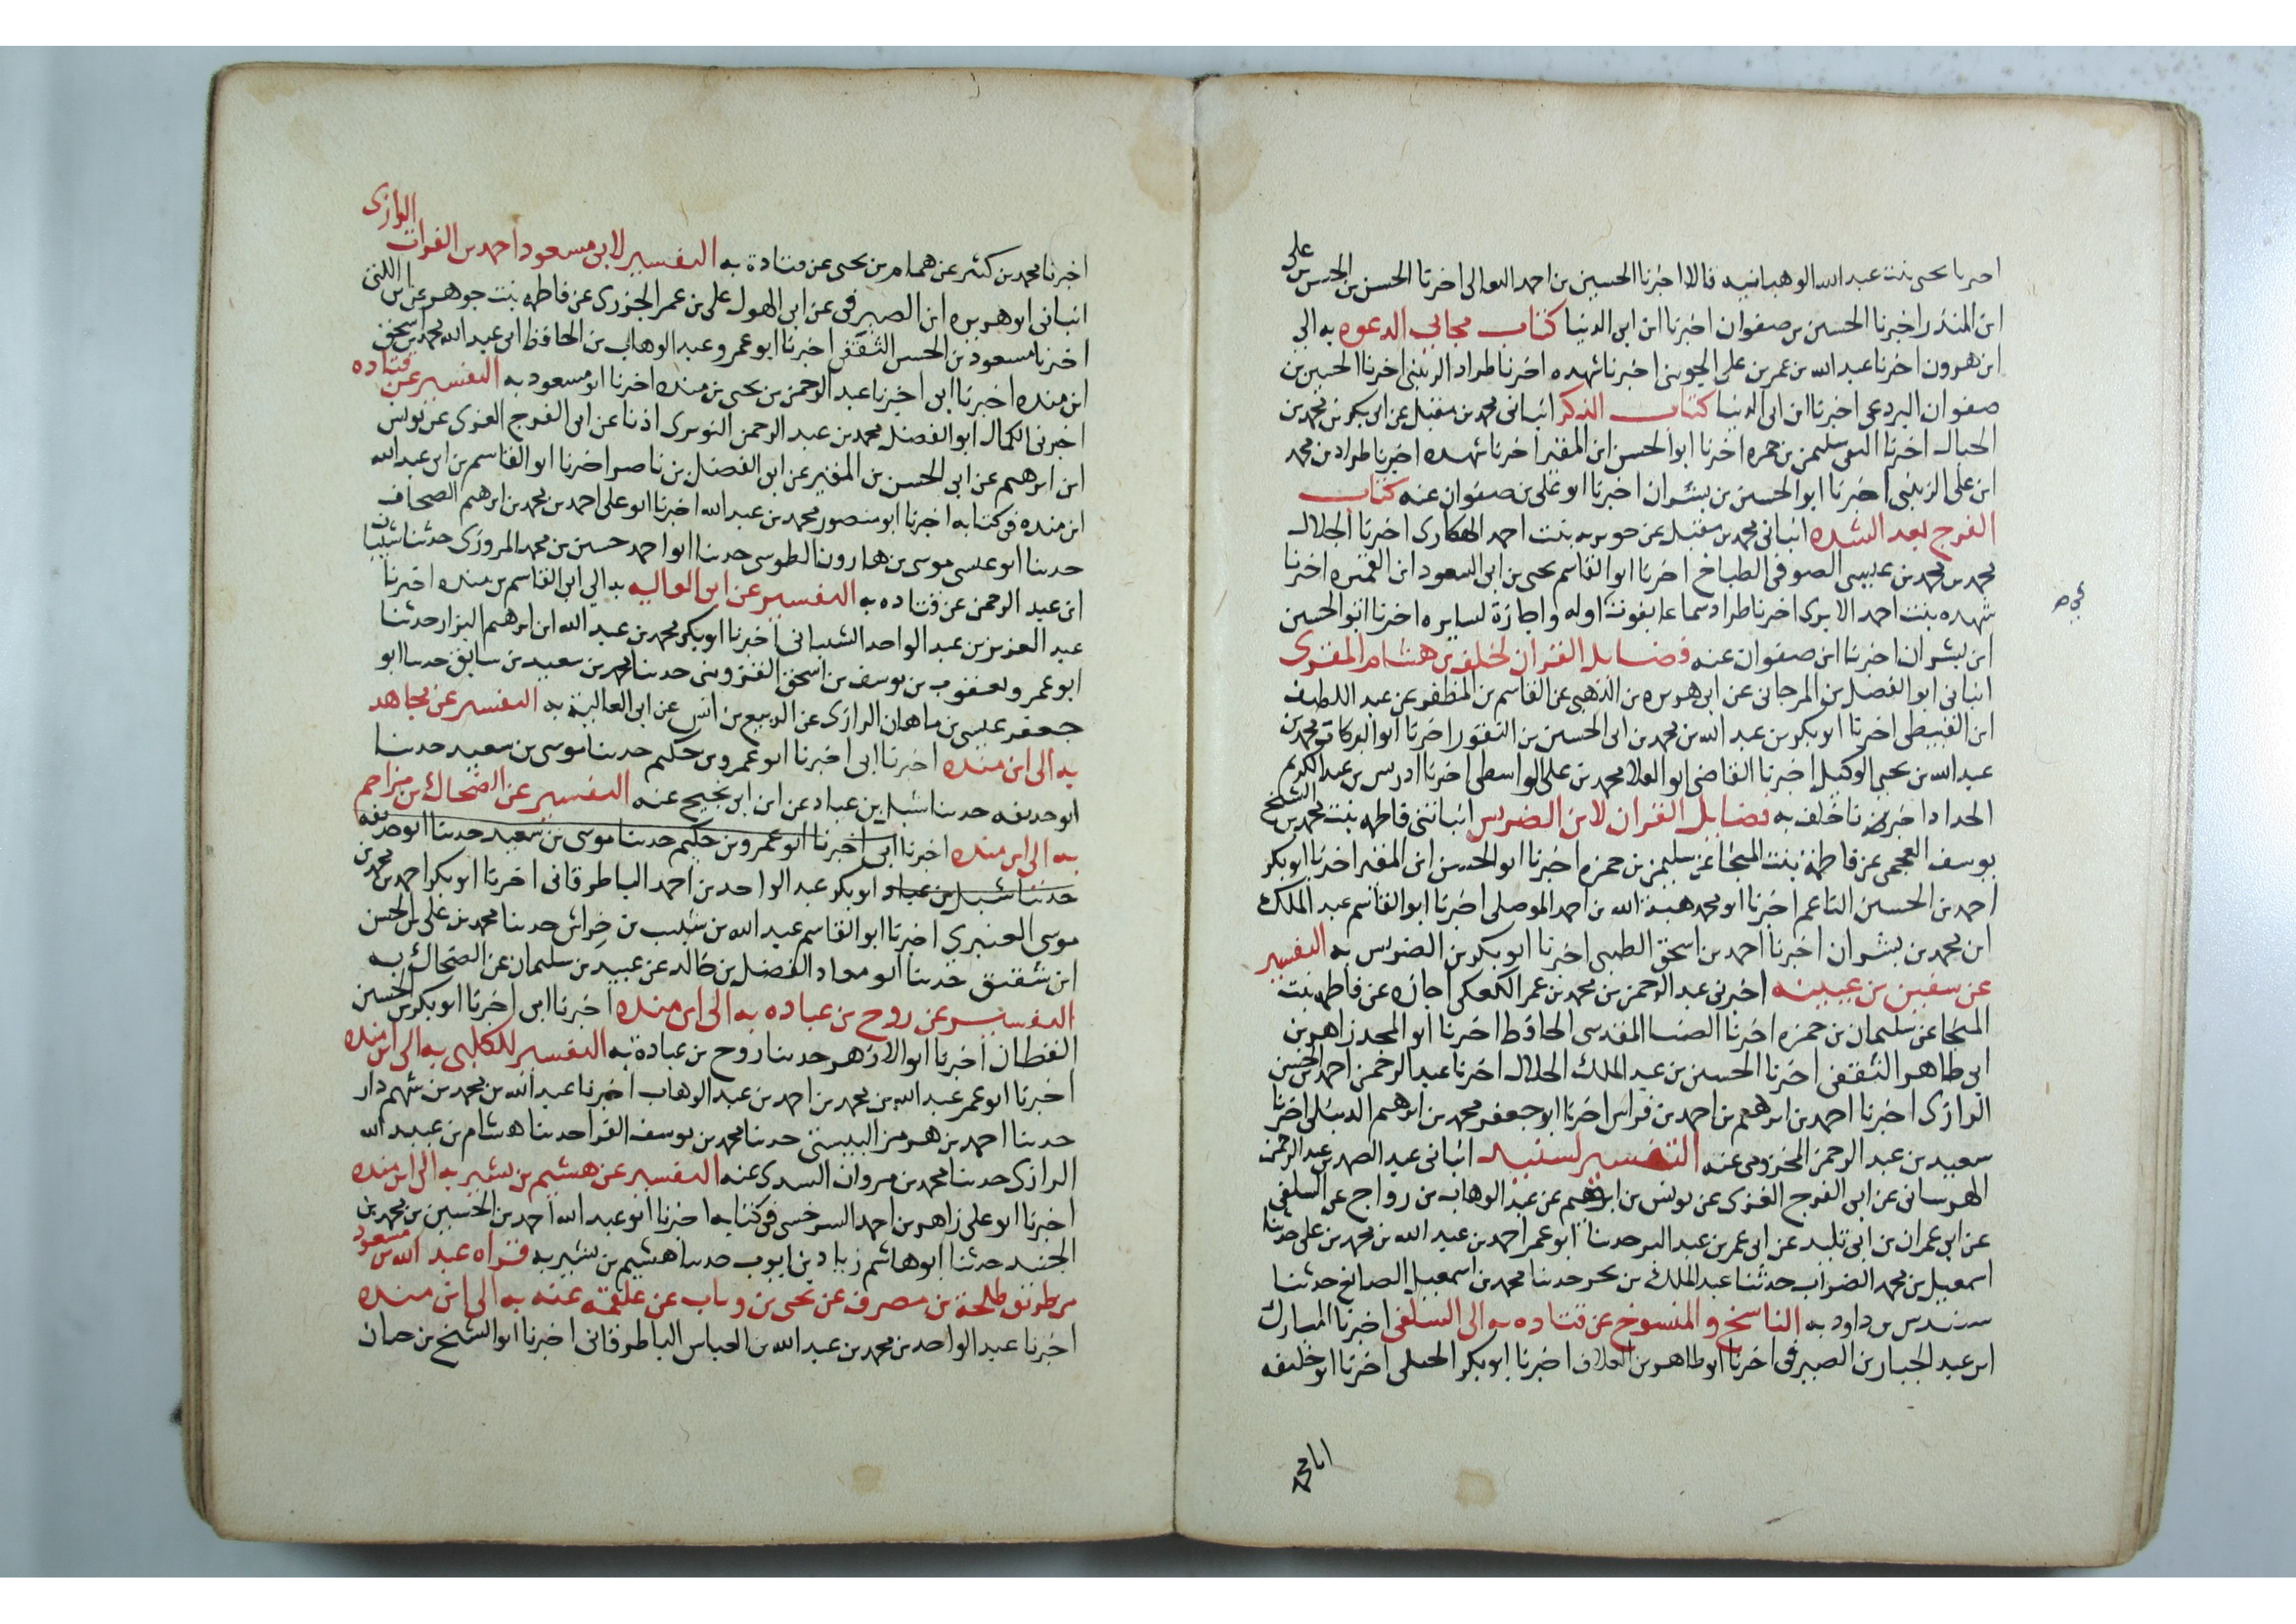 اخبرنا يحيى بنت عبد الله الوهبانيه قالا اخبرنا الحسين بن احمد النعالى اخبرنا الحسن بن الحسن بن على
ابن المنذر اخبرنا الحسين بن صفوان اخبرنا ابن ابى الدنيا كتاب مجابى الدعوه به الى
ابن هرون اخبرنا عبد الله بن عمر بن على الجوينى اخبرنا شهده اخبرنا طراد الزينبى اخبرنا الحسين بن
صفوان البردعى اخبرنا ابن ابى الدنيا كتاب الذكر انبانى محمد بن مقبل عن ابى بكر بن محمد بن
الحبال اخبرنا التقى سليمن بن حمزه اخبرنا ابو الحسن ابن المقير اخبرنا شهده اخبرنا طراد بن محمد
ابن على الزينبى اخبرنا ابو الحسين بن بشران اخبرنا ابو على بن صفوان عنه كتاب
الفرج بعد الشده انبانى محمد بن مقبل عن جويريه بنت احمد الهكارى اخبرنا الجلال
محمد بن محمد بن عيسى الصوفى الطباخ اخبرنا ابو القاسم يحيى بن ابى السعود ابن القميره اخبرنا
شهده بنت احمد الابرى اخبرنا طراد سماعا بفوت اوله واجازة لسايره اخبرنا ابو الحسين
ابن بشران اخبرنا ابن صفوان عنه فضايل القران لخلف بن هشام المقرى
انبانى ابو الفضل بن المرجانى عن ابى هريره بن الذهبى عن القاسم بن المظفر عن عبد اللطيف
ابن القبيطى اخبرنا ابو بكر بن عبد الله بن محمد بن ابى الحسين بن النقور اخبرنا ابو البركات محمد بن
عبد الله بن يحيى الوكيل اخبرنا القاضى ابو العلا محمد بن على الواسطى اخبرنا ادريس بن عبد الكريم
الحداد اخبرنا خلف به فضايل القران لابن الضريس انباتنى فاطمه بنت محمد بن الشيخ
يوسف العجمى عن فاطمة بنت المنجا عن سليمن بن حمزه اخبرنا ابو الحسن ابن المقير اخبرنا ابو بكر
احمد بن الحسين الناعم اخبرنا ابو محمد هبة الله بن احمد الموصلى اخبرنا ابو القاسم عبد الملك
ابن محمد بن بشران اخبرنا احمد بن اسحق الطيبى اخبرنا ابو بكر بن الضريس به التفسير
عن سفين بن عيينه اخبرنى عبد الرحمن بن محمد بن عمر الكعكى اجازه عن فاطمه بنت
المنجا عن سليمان بن حمزه اخبرنا الضيا المقدسى الحافظ اخبرنا ابو المجد زاهر بن
ابى طاهر الثقفى اخبرنا الحسين بن عبد الملك الخلال اخبرنا عبد الرحمن احمد بن الحسن
الرازى اخبرنا احمد بن ابرهيم بن احمد بن فراس اخبرنا ابو جعفر محمد بن ابرهيم الديبلى اخبرنا
سعيد بن عبد الرحمن المخزومى عنه التفسير لسنيد انبانى عبد الصمد بن عبد الرحمن
الهرسانى عن ابى الفرج الغزى عن يونس بن ابرهيم عن عبد الوهاب بن رواج عن السلفى
عن ابى عمران بن ابى تليد عن ابى عمر بن عبد البر حدثنا ابو عمر احمد بن عبد الله بن محمد بن على حدثنا
اسمعيل بن محمد الضراب حدثنا عبد الملك بن بحر حدثنا محمد بن اسمعيل الصائغ حدثنا
سنيد بن داود به الناسخ والمنسوخ عن قتاده به الى السلفى اخبرنا المبارك
ابن عبد الجبار بن الصيرفى اخبرنا ابو طاهر بن العلاف اخبرنا ابو بكر الختلى اخبرنا ابو خليفه
اخبرنا محمد بن كثير عن همام بن يحيى عن قتادة به التفسير لابى مسعود احمد بن الفرات الرازى
انبانى ابو هريره ابن الصيرفى عن ابى الهول على بن عمر الجزرى عن فاطمه بنت جوهر عن ابن اللتى
اخبرنا مسعود بن الحسن الثقفى اخبرنا ابو عمرو عبد الوهاب بن الحافظ ابى عبد الله محمد بن اسحق
ابن منده اخبرنا ابى اخبرنا عبد الرحمن بن يحيى بن منده اخبرنا ابو مسعود به التفسير عن قتاده
اخبرنى الكمال ابو الفضل محمد بن عبد الرحمن النويرى اذنا عن ابى الفرج الغزى عن يونس
ابن ابرهيم عن ابى الحسن بن المقير عن ابى الفضل بن ناصر اخبرنا ابو القاسم بن ابى عبد الله
ابن منده فى كتابه اخبرنا ابو منصور محمد بن عبد الله اخبرنا ابو على احمد بن محمد بن ابرهيم الصحاف
حدثنا ابو عيسى موسى بن هارون الطوسى حدثنا ابو احمد حسين بن محمد المروزى حدثنا شيبان
ابن عبد الرحمن عن قتاده به التفسير عن ابى العاليه به الى ابى القاسم بن منده اخبرنا
عبد العزيز بن عبد الواحد الشيبانى اخبرنا ابو بكر محمد بن عبد الله ابن ابرهيم البزار حدثنا
ابو عمرو يعقوب بن يوسف بن اسحق القزوينى حدثنا محمد بن سعيد بن سابق حدثنا ابو
جعفر عيسى بن ماهان الرازى عن الربيع بن انس عن ابى العالية به التفسير عن مجاهد
به الى ابن منده اخبرنا ابى اخبرنا ابو عمرو بن حكيم حدثنا موسى بن سعيد حدثنا
ابو حذيفه حدثنا شبل بن عباد عن ابن ابى نجيح عنه التفسير عن الضحاك بن مزاحم
به الى ابن منده اخبرنا ابى اخبرنا ابو عمرو بن حكيم حدثنا موسى بن سعيد حدثنا ابو حذيفه
حدثنا شبل بن عباد ابو بكر عبد الواحد بن احمد الباطرقانى اخبرنا ابو بكر احمد بن محمد بن
موسى العنبري اخبرنا ابو القاسم عبد الله بن شبيب بن خراش حدثنا محمد بن على بن الحسن
ابن شقيق حدثنا ابو معاد الفضل بن خالد عن عبيد بن سليمان عن الضحاك به
التفسير عن روح بن عباده به الى ابن منده اخبرنا ابى اخبرنا ابو بكر بن الحسين
القطان اخبرنا ابو الازهر حدثنا روح بن عبادة به التفسير للكلبى به الى ابن منده
اخبرنا ابو عمر عبد الله بن محمد بن احمد بن عبد الوهاب اخبرنا عبد الله بن محمد بن شهم دار
حدثنا احمد بن هرمز البيبستى حدثنا محمد بن يوسف الفرا حدثنا هشام بن عبيد الله
الرازى حدثنا محمد بن مروان السدى عنه التفسير عن هشيم بن بشير به الى ابن منده
اخبرنا ابو على زاهر بن احمد السرخسى فى كتابه اخبرنا ابو عبد الله احمد بن الحسين بن محمد بن
الجنيد حدثنا ابو هاشم زياد بن ايوب حدثنا هشيم بن بشير به قراه عبد الله بن مسعود
من طريق طلحة بن مصرف عن يحيى بن وثاب عن علقمه عنه به الى ابن منده
اخبرنا عبد الواحد بن محمد بن عبد الله بن العباس الباطرقانى اخبرنا ابو الشيخ بن حيان